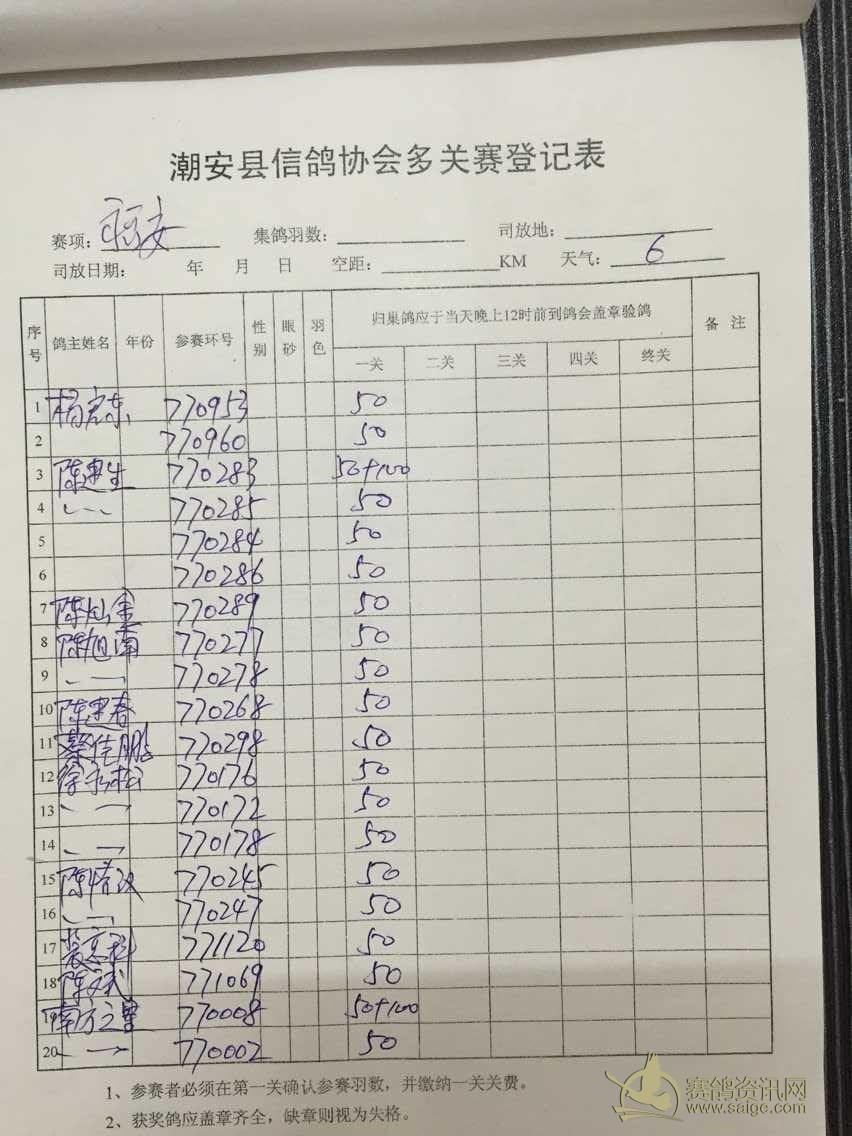 潮安县信鸽协会多关赛登记表
赛项: 集鸽羽数: 司放地:
司放日期: 年 月 日 空距: KM 天气: 6
序号 鸽主姓名 年份 参赛环号 性别 眼砂 羽色 归巢鸽应于当天晚上12时前到鸽会盖章验鸽 备 注
一关 二关 三关 四关 终关
1 杨宏东 770953 50
2 770960 50
3 陈建生 770283 50+100
4 770285 50
5 770284 50
6 770286 50
7 陈灿金 770289 50
8 陈旭南 770277 50
9 770278 50
10 陈建春 770268 50
11 蔡佳鹏 770298 50
12 徐永松 770176 50
13 770172 50
14 770178 50
15 陈 770245 50
16 770247 50
17 771120 50
18 陈 771069 50
19 南方之星 770008 50+100
20 770002 50
1、参赛者必须在第一关确认参赛羽数，并缴纳一关关费。
2、获奖鸽应盖章齐全，缺章则视为失格。
赛鸽资讯网
www.saige.com